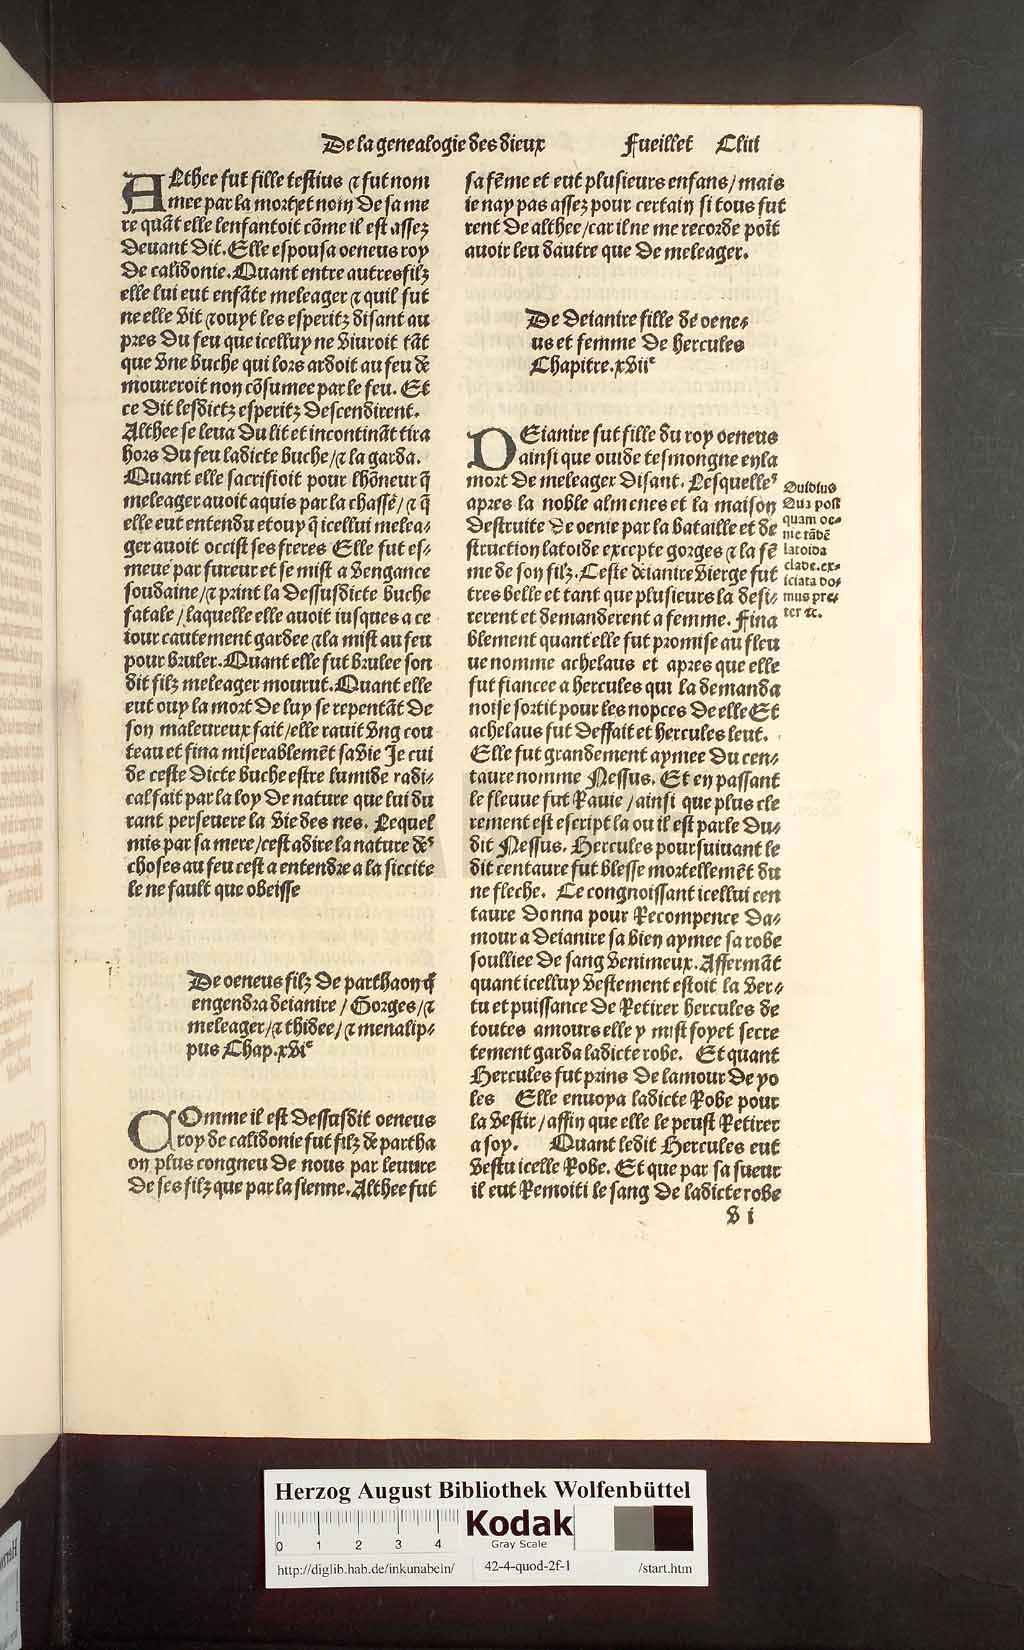 De la genealogie des dieux Fueillet Cliii
ALthee fut fille testius ⁊ fut nom
mee par la mort et nom De sa me
re quāt elle lenfantoit cōme il est assez
deuant dit. Elle espousa oeneus roy
de calidonie. Quant entre autres filz
elle lui eut enfāte meleager ⁊ quil fut
ne elle vit ⁊ ouyt les esperitz disant au
pres du feu que icelluy ne viuroit tāt
que vne buche qui lors ardoit au feu de
moureroit non cōsumee par le feu. Et
ce dit lesdictz esperitz descendirent.
Althee se leua du lit et incontināt tira
hors du feu ladicte buche/⁊ la garda.
Quant elle sacrifioit pour lhōneur q̄
meleager auoit aquis par la chasse/⁊ q̄
elle eut entendu et ouy q̄ icellui melea-
ger auoit occist ses freres Elle fut es-
meue par fureur et se mist a vengance
soudaine/⁊ print la dessusdicte buche
fatale/laquelle elle auoit iusques a ce
iour cautement gardee ⁊ la mist au feu
pour bruler. Quant elle fut brulee son
dit filz meleager mourut. Quant elle
eut ouy la mort de luy se repentāt de
son maleureux fait/elle rauit vng cou
teau et fina miserablemēt sa vie Je cui
de ceste dicte buche estre lumide radi-
cal fait par la loy de nature que lui du
rant perseuere la vie des nes. Lequel
mis par sa mere/cest adire la nature des
choses au feu cest a entendre a la siccite
le ne fault que obeisse
De oeneus filz de parthaon q̄
engendra deianire/Gorges/⁊
meleager/⁊ thidee/⁊ menalip-
pus Chap. xvi^e
COmme il est dessusdit oeneus
roy de calidonie fut filz de partha
on plus congneu de nous par leuure
de ses filz que par la sienne. Althee fut
sa fēme et eut plusieurs enfans/mais
ie nay pas assez pour certain si tous fut
rent de althee/car il ne me recorde poīt
auoir leu dautre que de meleager.
De deianire fille de oene-
us et femme de hercules
Chapitre. xvii^e
DEianire fut fille du roy oeneus
ainsi que ouide tesmongne en la
mort de meleager disant. Lesquelles
apres la noble almenes et la maison
destruite de oenie par la bataille et de
struction latoide excepte gorges ⁊ la fē
me de son filz. Ceste deianire vierge fut
tres belle et tant que plusieurs la desi-
rerent et demanderent a femme. Fina
blement quant elle fut promise au fleu
ue nomme achelaus et apres que elle
fut fiancee a hercules qui la demanda
noise sortit pour les nopces de elle Et
achelaus fut deffait et hercules leut.
Elle fut grandement aymee du cen-
taure nomme Nessus. Et en passant
le fleuue fut Rauie/ainsi que plus cle
rement est escript la ou il est parle du-
dit Nessus. Hercules poursuiuant le
dit centaure fut blesse mortellemēt du
ne fleche. Ce congnoissant icellui cen
taure donna pour Recompence da-
mour a deianire sa bien aymee sa robe
soulliee de sang venimeux. Affermāt
quant icelluy vestement estoit la ver-
tu et puissance de Retirer hercules de
toutes amours elle y mist foy et secre
tement garda ladicte robe. Et quant
Hercules fut prins de lamour de yo
les Elle enuoya ladicte Robe pour
la vestir/affin que elle le peust Retirer
a soy. Quant ledit Hercules eut
vestu icelle Robe. Et que par sa sueur
il eut Remoiti le sang de ladicte robe
v i
Ouidius
Qua post
quam oe-
nie rādē
latoida
clade. ex-
iciata do-
mus pre-
ter ⁊c.
Herzog August Bibliothek Wolfenbüttel
0 1 2 3 4
Kodak
Gray Scale
http://diglib.hab.de/inkunabeln/ 42-4-quod-2f-1 /start.htm